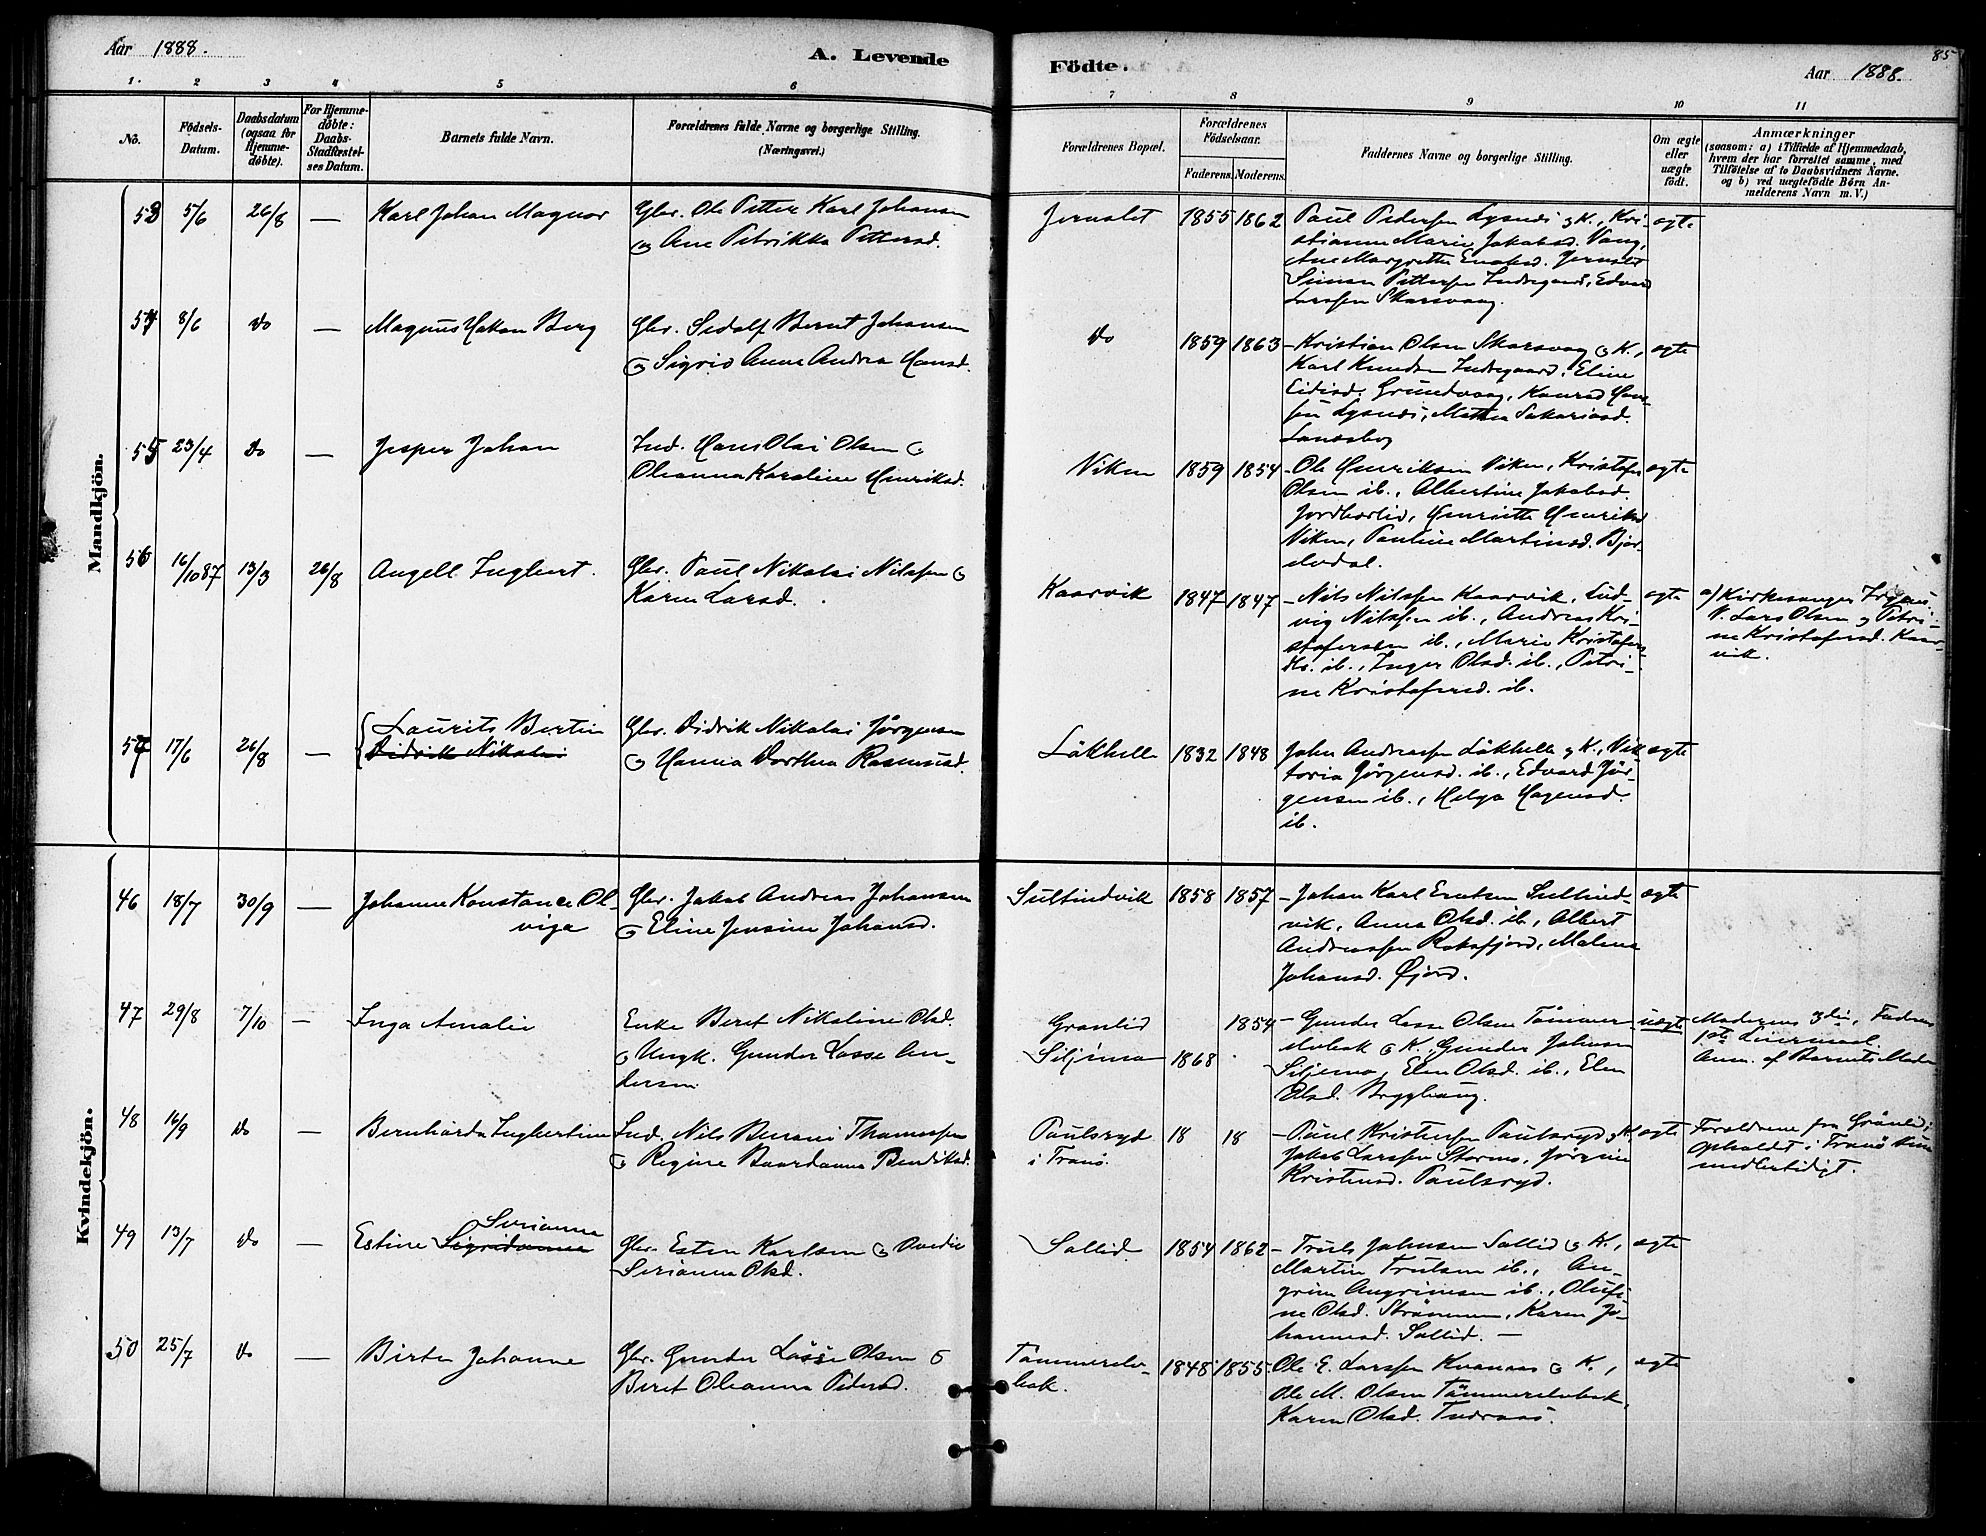 Aar 1888.
A. Levende
Födte.
85
Aar 1888.
1. 2 3 4 5 6
7 8 9 10 11
No.
Födsels-
Datum.
Daabsdatum
(ogsaa for
Hjemme-
döbte).
For Hjemme-
döbte:
Daabs-
Stadfæstel-
ses Datum.
Barnets fulde Navn.
Forældrenes fulde Navne og borgerlige Stilling.
(Næringsvei.)
Forældrenes Bopæl.
Forældrenes
Födselsaar.
Faderens. Moderens.
Faddernes Navne og borgerlige Stilling.
Om ægte
eller
uægte
födt.
Anmærkninger
(saasom: a) i Tilfælde af Hjemmedaab,
hvem der har forrettet samme, med
Tilföielse af to Daabsvidners Navne.
og b) ved uægtefödte Börn An-
melderens Navn m. V.)
Mandkjön.
53 5/6 26/8 — Karl Johan Magnor
Gbr. Ole Petter Karl Johansen
og Ane Petrikka Pettersd.
Jernslet 1855 1862
Paul Pedersen Lysnes og K., Kri-
stianne Marie Jakobsd. Vang,
Ane Margrethe Enoksd. Jernslet
Simon Pettersen Indregaard, Edvard
Larssen Skarsvaag.
ægte
54 8/6 do — Magnus Hakon Berg
Gbr. Sedolf Bernt Johansen
og Sigrid Anne Andrea Hansd.
do 1859 1863
– Kristian Olsen Skarsvag og K.,
Karl Knudsen Indregaard, Eline
Eidisd. Grundvaag, Konrad Han-
sen Lysnes, Mathea Sakariasd.
ægte
55 23/4 do — Jesper Johan
Ind. Hans Olai Olsen og
Oleanna Karoline Henriksd.
Viken 1859 1854
– Ole Henriksen Viken, Kristofer
Olsen ib., Albertine Jakobsd.
Jordbærlid, Henriette Henriksd.
Viken, Pauline Martinsd. Bjør-
elvdal.
ægte
56 16/10 87 13/3 26/8 Angell Ingbert.
Gbr. Paul Nikolai Nilssen og
Karen Larsd.
Kaarvik 1847 1847
– Nils Nilssen Kaarvik, Lud-
vig Nilssen ib., Andreas Kri-
stofersen ib., Marie Kristofers-
ib., Inger Olsd. ib., Petri-
ne Kristofersd. ib.
ægte
a) Kirkesanger
V. Lars Olsen og Petri-
ne Kristofersd. Kaar-
vik.
57 17/6 26/8 — Laurits Bertin
Didrik Nikolai
Gbr. Didrik Nikolai Jørgensen
og Hanna Dorthea Rasmusd.
Låkhelle 1832 1848
John Andreassen Låkhelle og K., Vik-
toria Jørgensd. ib., Edvard Jør-
gensen ib., Helga Hagensd.
ib.
ægte
Kvindekjön.
46 18/7 30/9 — Johanne Konstance Ol-
viga
Gbr. Jakob Andreas Johansen
og Eline Jensine Johansd.
Sultindvik 1858 1857
– Johan Karl Enoksen Sultind-
vik, Anna Olsd. ib., Albert
Andreassen Roksfjord, Malene
Johansd. Øjord.
ægte
47 29/8 7/10 — Inga Amalie
Enke Beret Nikoline Olsd.
og Ungk. Gunder Lasse An-
dersen
Granlid 1854
Siljemo 1868
– Gunder Lasse Olsen Tømmer-
elvbak og K., Gunder Johnsen
Siljemo, Elen Olsd. ib., Elen
Olsd. Brygghaug.
uægte
Moderens 3die, Faderens
1ste Leiermaal.
Anm. af Barnets Moder
48 16/9 do — Bernharda Ingbertine
Ind. Nils Benoni Thomassen
og Regine Baardanna Bendiksd.
Paulsryd
i Tranö.
18 18
– Paul Kristensen Paulsryd og K.
Jakob Larssen Stormo, Jørgine
Kristensd. Paulsryd.
ægte
Forældrene fra Grönlid,
opholdt i Tranö kun
midlertidigt.
49 13/7 do — Estine Serianna
Sigridanna
Gbr. Esten Karlsen og Ovedie
Serianna Olsd.
Sollid 1854 1862
– Truls Johnsen Sollid og K.,
Martin Trulsen ib., An-
grim Angrimsen ib., Olufi-
ne Olsd. Strømmen, Karen Jo-
hannesd. Sollid. —
ægte
50 25/7 do — Birte Johanne
Gbr. Gunder Lasse Olsen og
Beret Oleanna Pedersd.
Tømmerelv-
bak.
1848 1855.
Ole E. Larssen Kvanaas og K.,
Ole M. Olsen Tømmerelvbak,
Karen Olsd. Tudraas.
ægte